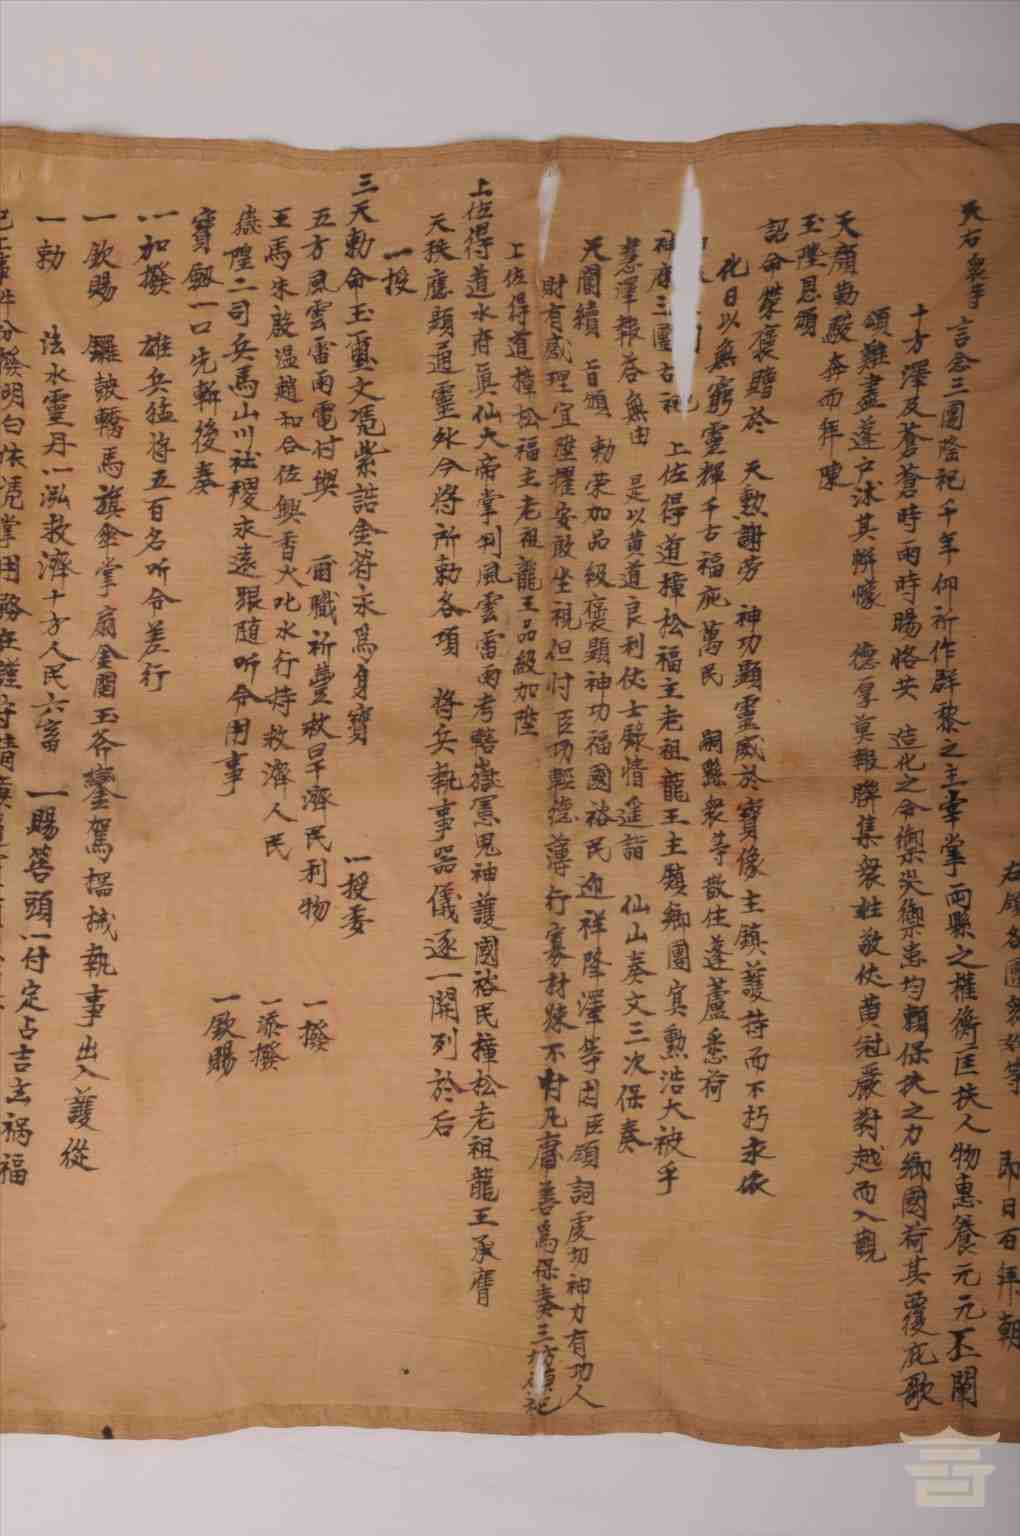 右領各團衆姓等　即日百拜朝
天右衆等　言念三團隆祀千年仰祈作群黎之主宰掌兩縣之權衡匡扶人物惠養元元丕闡
十方澤及蒼蒼時雨時賜恪共　造化之令禦災禦患均賴保扶之力鄉國荷其覆庇歌
頌難盡蓬户沭其幈幪　德厚莫報聯集衆姓敬伏黄冠嚴對越而入觀
天顔勤駿奔而拜陳
玉陛恩頒
詔命榮褒贈於　天勲謝勞　神功顯靈威於寶像主鎮護持而不朽永依
化日以無窮靈輝千古福庇萬民　嗣縣衆等散住蓬蘆悉荷
神府三團古祀　上佐得道撞松福主老祖龍王主鎮鄉團寘勲浩大被乎
惠澤報答無由　是以黄道良利伏士縣情遥詣　仙山奏文三次保奏
天閽續　旨頒　勅荣加品級褒題神功福國裕民迎祥降澤等因臣領　詞虔切神力有功人
財有感理宜陞擢安敢坐視但忖臣功輕德薄行寡材踈不忖凡庸善爲保奏三坊祀
上佐得道撞松福主老祖龍王品級加陞
上佐得道水府眞仙大帝掌判風雲雷雨考轄嶽凟鬼神護國裕民撞松老祖龍王承膺
天秩應顯通靈外今將所勅各項　將兵執事器儀逐一開列於后
一授
三天勅命玉璽文凴紫誥金符永爲身寶　一授委
五方風雲雷雨電付與　爾職祈豐救旱濟民利物　一撥
王馬朱殷温趙和合佐興香火叱水行持救濟人民　一添撥
隍二司兵馬山川社稷永遠跟隨听令用事　一欽賜
寶劔一口先斬後奏
一加撥　雄兵猛將五百名听令差行
一欽賜　鑼皷轎馬旗傘掌扇金圈玉斧鑾駕噐械執事出入護從
一勅　法水靈丹一泓救濟十方人民六畜　一賜筶頭一付定占吉㐫禍福